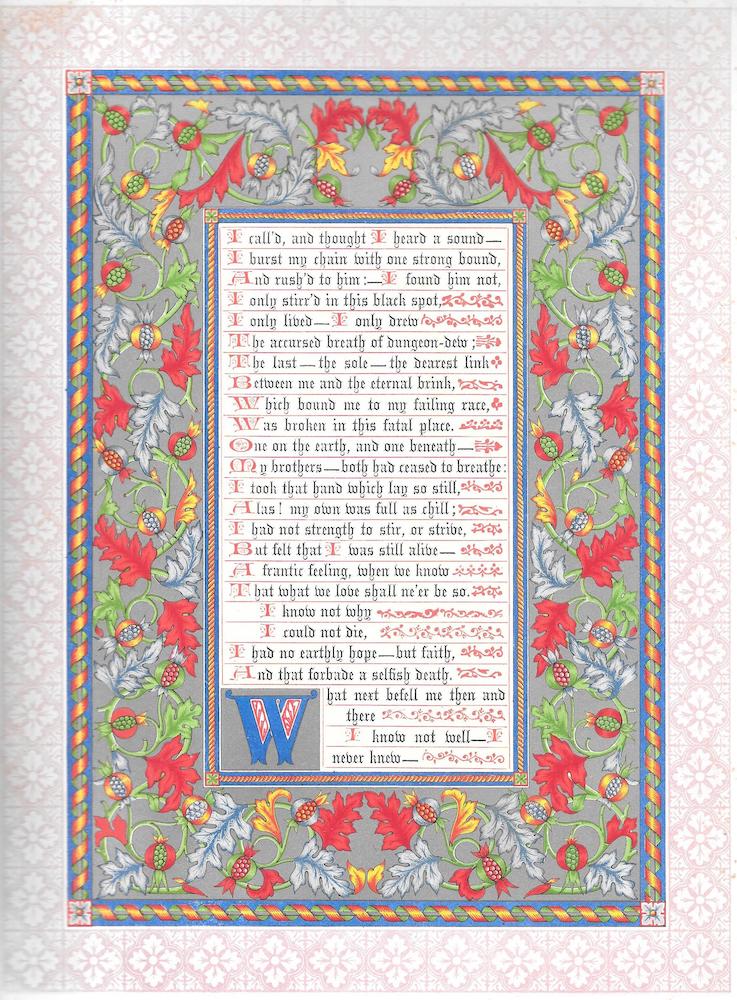 I call'd, and thought I heard a sound—
I burst my chain with one strong bound,
And rush'd to him:—I found him not,
I only stirr'd in this black spot,
I only lived—I only drew
The accursed breath of dungeon-dew;
The last—the sole—the dearest link
Between me and the eternal brink,
Which bound me to my failing race,
Was broken in this fatal place.
One on the earth, and one beneath—
My brothers—both had ceased to breathe:
I took that hand which lay so still,
Alas! my own was full as chill;
I had not strength to stir, or strive,
But felt that I was still alive—
A frantic feeling, when we know
That what we love shall ne'er be so.
I know not why
I could not die,
I had no earthly hope—but faith,
And that forbade a selfish death.
What next befell me then and
there
I know not well—I
never knew—